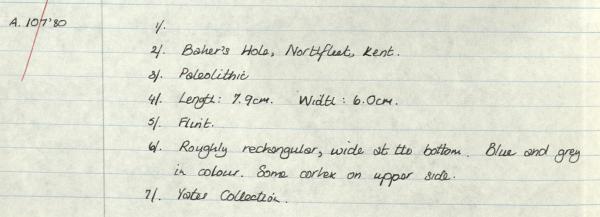 A. 107'80
1/.
2/. Baker's Hole, Northfleet, Kent.
3/. Paleolithic
4/. Length: 7.9cm. Width: 6.0cm.
5/. Flint.
6/. Roughly rechangular, wide at the bottom. Blue and grey
in colour. Some cortex on upper side.
7/. Yates Collection.